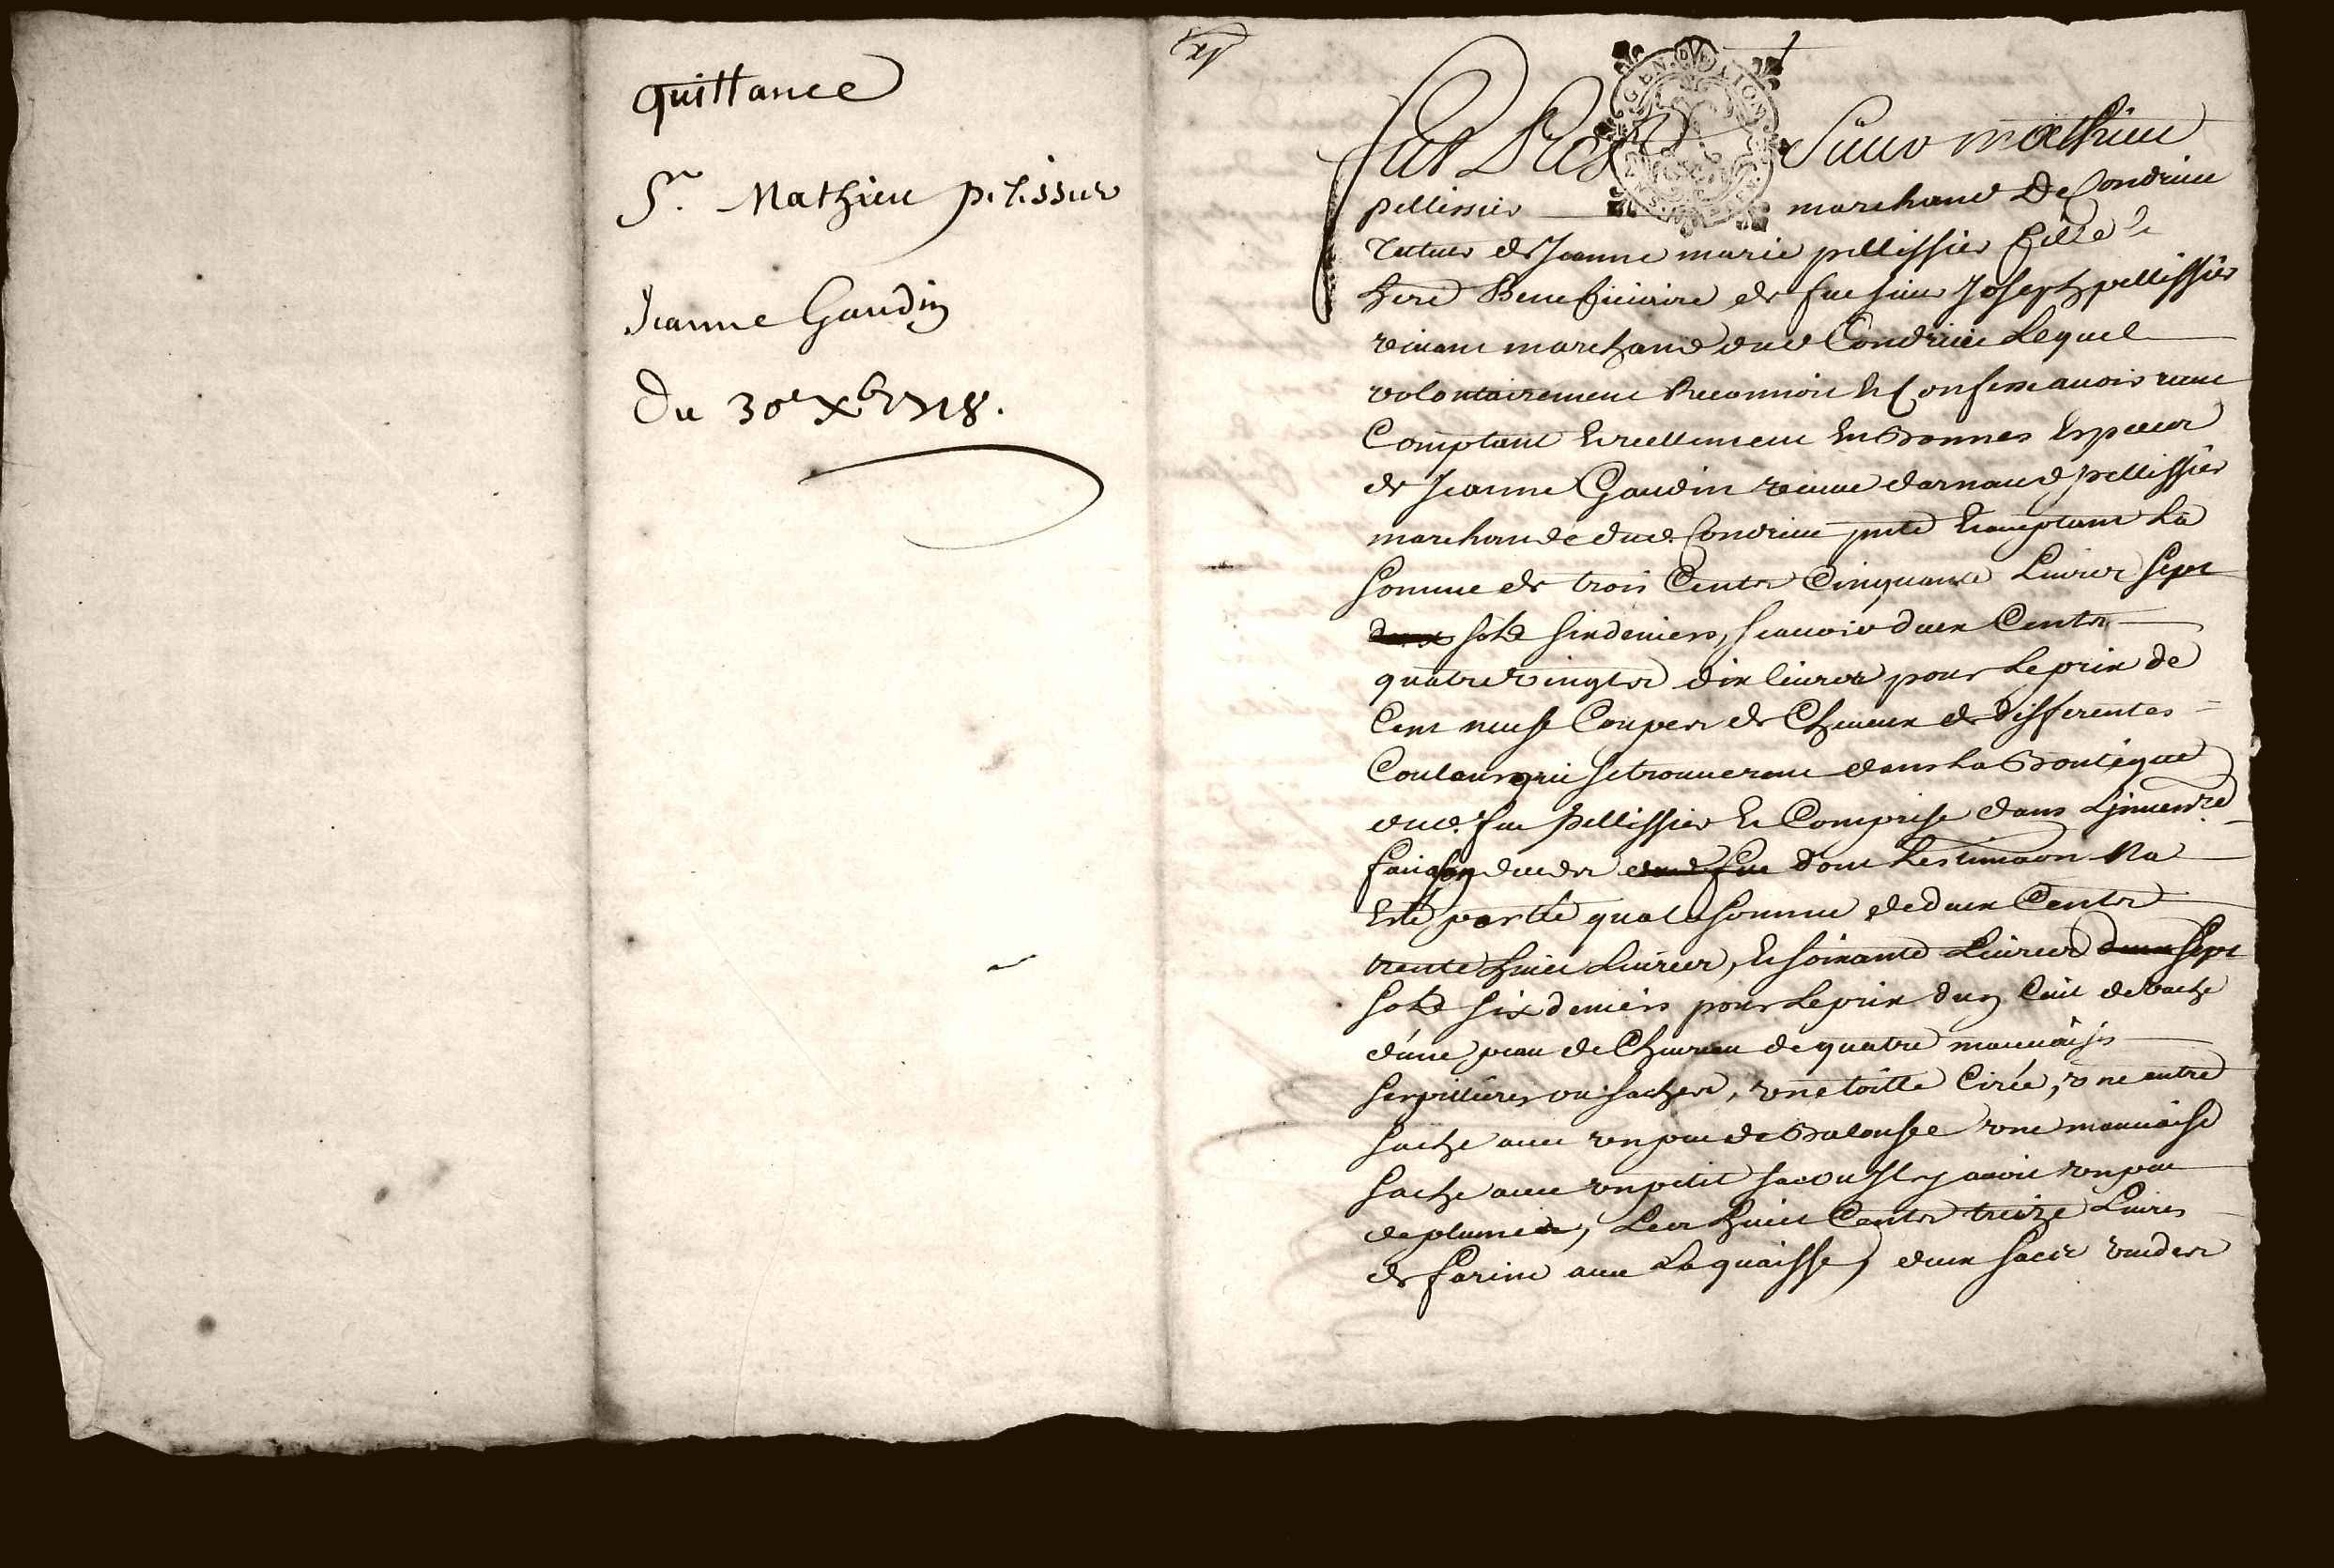 quittance
Sr. Mathieu pelissier
Jeanne Gaudin
Du 30e Xbre 1718.
Fut Pres Sieur mathieu
pellissier marchand De Condrieu
Tuteur de Jeanne marie pellissier fille &
here Beneficiaire de feu sieur Joseph pellissier
vivant marchand dud Condrieu Lequel
volontairement Reconnoit et Confesse avoir receu
Comptant et reellement en Bonnes Especes
de Jeanne Gaudin veuve darnaud pellissier
marchande dud. Condrieu pnte acceptant La
somme de trois Cents Cinquante Livres sept
deux sols six deniers, scavoir deux Cents
quatre vingts dix livres pour Le prix de
Cent neuf Coupes de Cheveux de differentes
Couleurs qui se trouverent dans La Boutique
dud. feu Pellissier et Comprise dans Linventre
dud feu dont Lestimaon Na
Esté portée qua la somme de deux Cents
trente huict Livres, et soixante Livres deux sept
sols six deniers pour Le prix dun Cuir de vache
d'une peau de Chevreau de quatre mauvaises
serpilieres ou saches, une toille Cirée, une autre
sache avec un peu de Balousse une mauvaise
sache avec un petit sac ou Il y avoit un peu
de plumes, Les huict Cents treize Livres
de farine avec La quaisse, deux sacs vuides